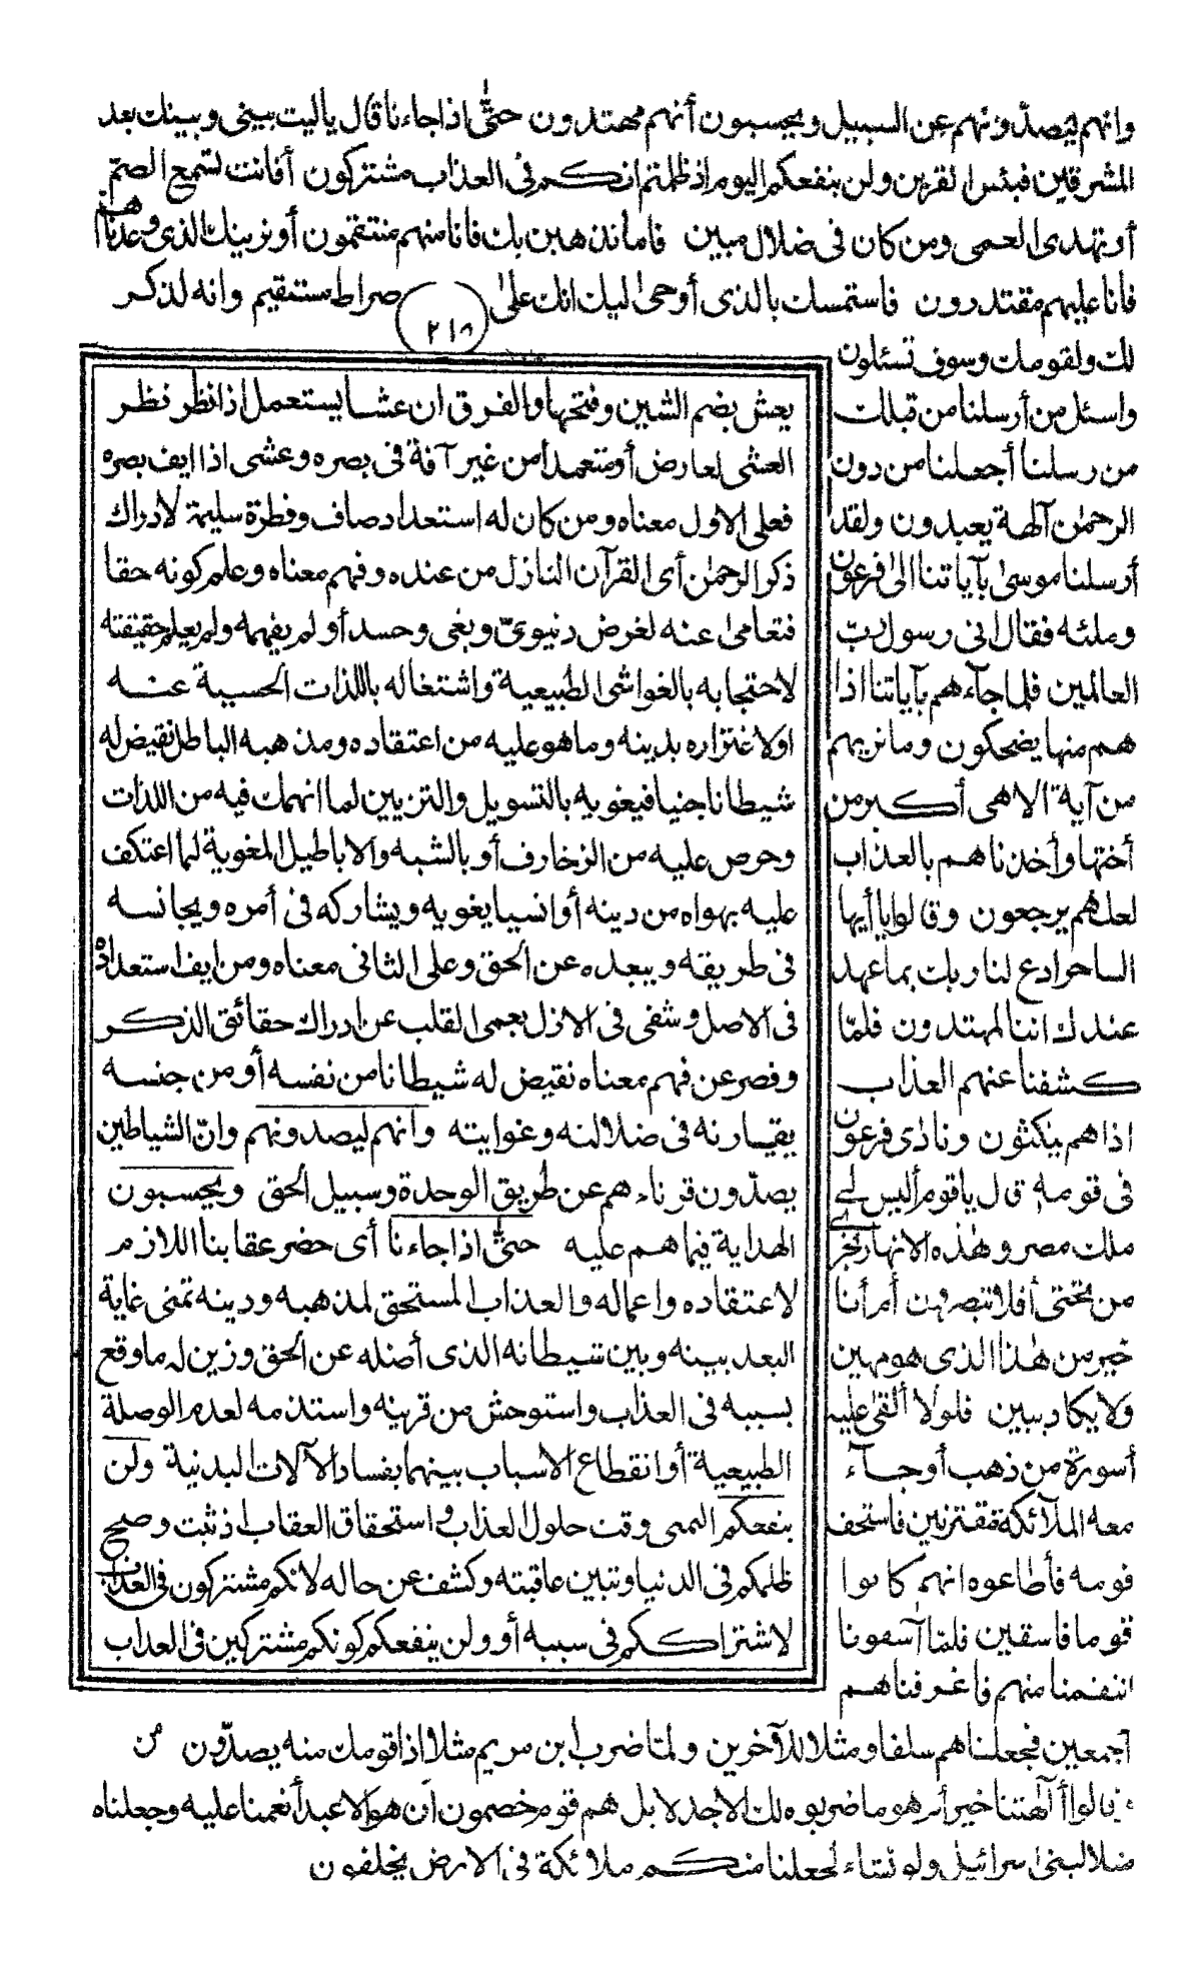 وانهم ليصدّونهم عن السبيل ويحسبون أنهم مهتدون حتّٰى اذا جاءنا قال ياليت بينى وبينك بعد
المشرقين فبئس القرين ولن ينفعكم اليوم اذ ظلمتم انكم فى العذاب مشتركون أفانت تسمع الصمّ
أوتهدى العمى ومن كان فى ضلال مبين فاما نذهبن بك فانا منهم منتقمون أونرينك الذى وعدناهم
فانا عليهم مقتدرون فاستمسك بالذى أوحى اليك انك علىٰ صراط مستقيم وانه لذكر
٢١٨
لك ولقومك وسوف تسئلون
واسئل من أرسلنا من قبلك
من رسلنا أجعلنا من دون
الرحمٰن آلهة يعبدون ولقد
أرسلنا موسىٰ بآياتنا الىٰ فرعون
وملئه فقال انى رسول ربّ
العالمين فلما جآءهم بآياتنا اذا
هم منها يضحكون وما نريهم
من آية الاهى أكبر من
أختها وأخذناهم بالعذاب
لعلهم يرجعون وقالوا ياأيها
الساحر ادع لنا ربك بما عهد
عندك اننا لمهتدون فلمّا
كشفنا عنهم العذاب
اذاهم ينكثون ونادٰى فرعون
فى قومه قال ياقوم أليس لى
ملك مصر وهٰذه الانهار تجرى
من تحتى أفلا تبصرون أم أنا
خير من هٰذا الذى هو مهين
ولا يكاد يبين فلولا ألقى عليه
أسورة من ذهب أو جآء
معه الملآئكة مقترنين فاستخف
قومه فأطاعوه انهم كانوا
قوما فاسقين فلمّا آسفونا
انتقمنا منهم فاغرقناهم
يعش بضم الشين وفتحها والفرق ان عشا يستعمل اذا نظر نظر
العشى لعارض أو متعمدا من غير آفة فى بصره وعشى اذا ايف بصره
فعلى الاول معناه ومن كان له استعداد صاف وفطرة سليمة لادراك
ذكر الرحمٰن أى القرآن النازل من عنده وفهم معناه وعلم كونه حقا
فتعامى عنه لغرض دنيوىّ وبغى وحسد أو لم يفهمه ولم يعلم حقيقته
لاحتجابه بالغواشى الطبيعية واشتغاله باللذات الحسية عنه
اولاغتراره بدينه وما هو عليه من اعتقاده ومذهبه الباطل نقيض له
شيطانا جنيا فيغويه بالتسويل والتزيين لما انهمك فيه من اللذات
وحرص عليه من الزخارف أو بالشبه والاباطيل المغوية لما اعتكف
عليه بهواه من دينه أوانسيا يغويه ويشاركه فى أمره ويجانسه
فى طريقه ويبعده عن الحق وعلى الثانى معناه ومن ايف استعداده
فى الاصل وشقى فى الازل بعمى القلب عن ادراك حقائق الذكر
وقصر عن فهم معناه نقيض له شيطانا من نفسه أو من جنسه
يقارنه فى ضلالته وغوايته وانهم ليصدونهم وانّ الشياطين
يصدّون قرناءهم عن طريق الوحدة وسبيل الحق ويحسبون
الهداية فيما هم عليه حتّٰى اذا جاءنا أى حضر عقابنا اللازم
لاعتقاده واعماله والعذاب المستحق لمذهبه ودينه تمنى غاية
البعد بينه وبين شيطانه الذى أضله عن الحق وزين له ما وقع
بسببه فى العذاب واستوحش من قرينه واستذمه لعدم الوصلة
الطبيعية أو انقطاع الاسباب بينهما بفساد الآلات البدنية ولن
ينفعكم التمنى وقت حلول العذاب واستحقاق العقاب اذ ثبت وصح
ظلمكم فى الدنيا وتبين عاقبته وكشف عن حاله لانكم مشتركون فى العذاب
لاشتراككم فى سببه أو ولن ينفعكم كونكم مشتركين فى العذاب
أجمعين فجعلناهم سلفا ومثلا للآخرين ولمّا ضرب ابن مريم مثلا اذا قومك منه يصدّون
قالوا أآلهتنا خير أم هو ما ضربوه لك الاجدلا بل هم قوم خصمون ان هو الا عبد أنعمنا عليه وجعلناه
مثلا لبنى اسرائيل ولو نشاء لجعلنا منكم ملائكة فى الارض يخلفون